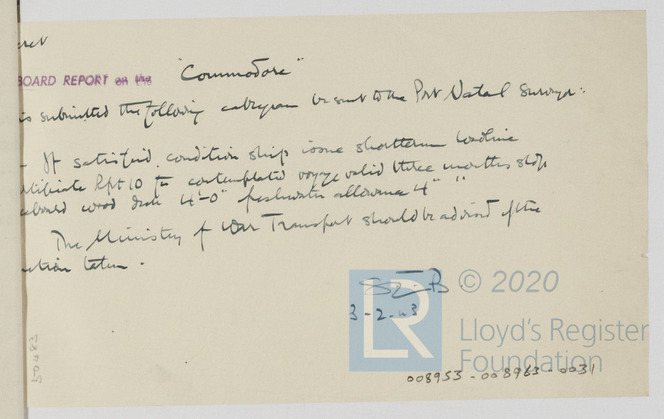 BOARD REPORT on the "Commodore"
is submitted the following cablegram be sent to the Port Natal Surveyor:
- If satisfied condition ship issue shortterm loadline
Rpt 10 for contemplated voyage valid three months stop
wood deck 4'-0" freshwater allowance 4" "
The Ministry of War Transport should be advised of the
action taken.
3-2-43
© 2020
LR
Lloyd's Register
Foundation
50483
008953-008963-0031